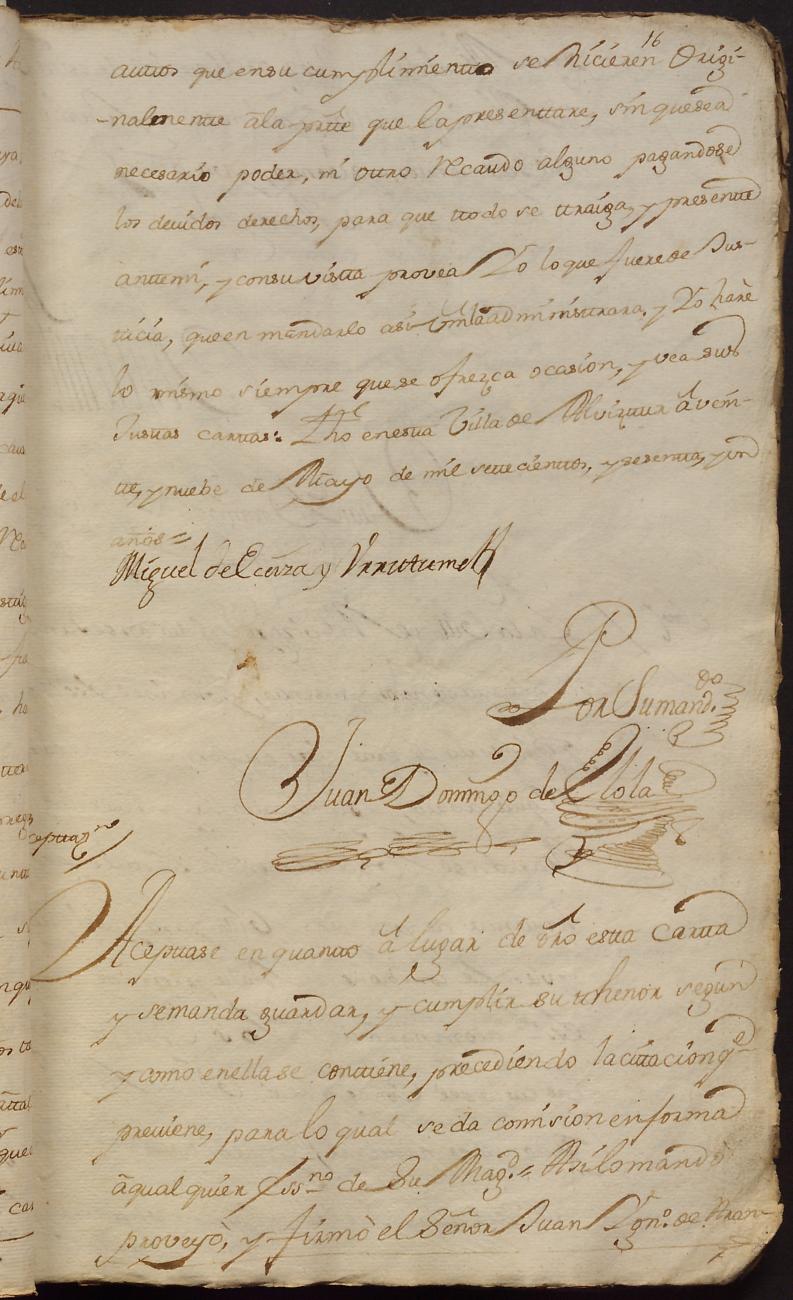 16
auttos que en su cumplimientto se hicieren Origi-
-nalmentte â la partte que la presenttare, sin que sea
necesario poder, ni ottro Recaudo alguno pagandose
los devidos derechos, para que ttodo se ttraiga, y presentte
antte mi, y con su vistta provea Yo lo que fuere de Jus-
ticia, que en mandarlo asi Vm la administtrara, y Yo harè
lo mismo siempre que se ofrezca ocasion, y vea sus
Justtas carttas: Fho en estta Villa de â vein-
tte, y nuebe de Mayo de mil settecienttos, y sesentta, y un
años =
Miguel de y
Por su mando
Juan Domingo de Elola
Aceptase en quantto â lugar de dro estta Cartta
y se manda guardar, y cumplir su thenor segun
y como en ella se conttiene, precediendo la cittacion qe
previene, para lo qual se da comision en forma
â qualquier Essno de Su Magd = Asi lo mandò
proveyò, y firmò el Señor Juan Ygno de Aran-